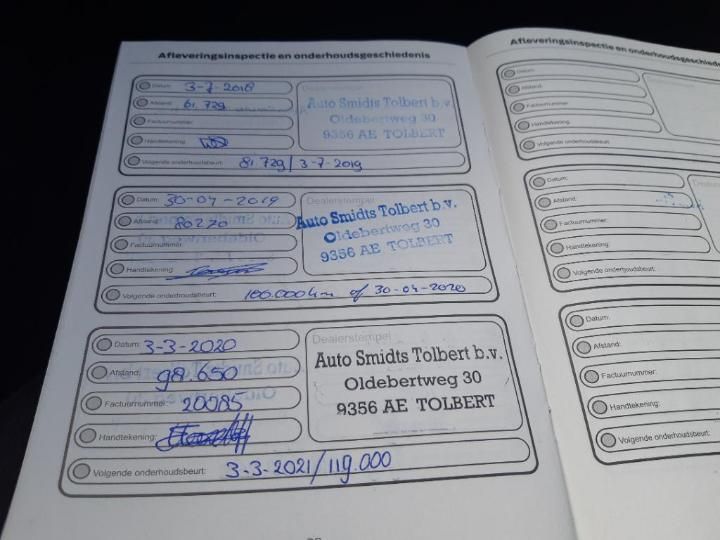 Afleveringsinspectie en onderhoudsgeschiedenis
Datum: 3-7-2018
Afstand: 61.729
Factuurnummer:
Handtekening:
Volgende onderhoudsbeurt: 81.729 / 3-7-2019
Dealerstempel
Auto Smidts Tolbert b.v.
Oldebertweg 30
9356 AE TOLBERT
Datum: 30-04-2019
Afstand: 80270
Factuurnummer:
Handtekening:
Volgende onderhoudsbeurt: 100.000 km of 30-04-2020
Dealerstempel
Auto Smidts Tolbert b.v.
Oldebertweg 30
9356 AE TOLBERT
Datum: 3-3-2020
Afstand: 98.650
Factuurnummer: 20085
Handtekening:
Volgende onderhoudsbeurt: 3-3-2021/119.000
Dealerstempel
Auto Smidts Tolbert b.v.
Oldebertweg 30
9356 AE TOLBERT
Afleveringsinspectie en onderhoudsgeschiede
Datum:
Afstand:
Factuurnummer:
Handtekening:
Volgende onderhoudsbeurt:
Datum:
Afstand:
Factuurnummer:
Handtekening:
Volgende onderhoudsbeurt:
Datum:
Afstand:
Factuurnummer:
Handtekening:
Volgende onderhoudsbeurt: